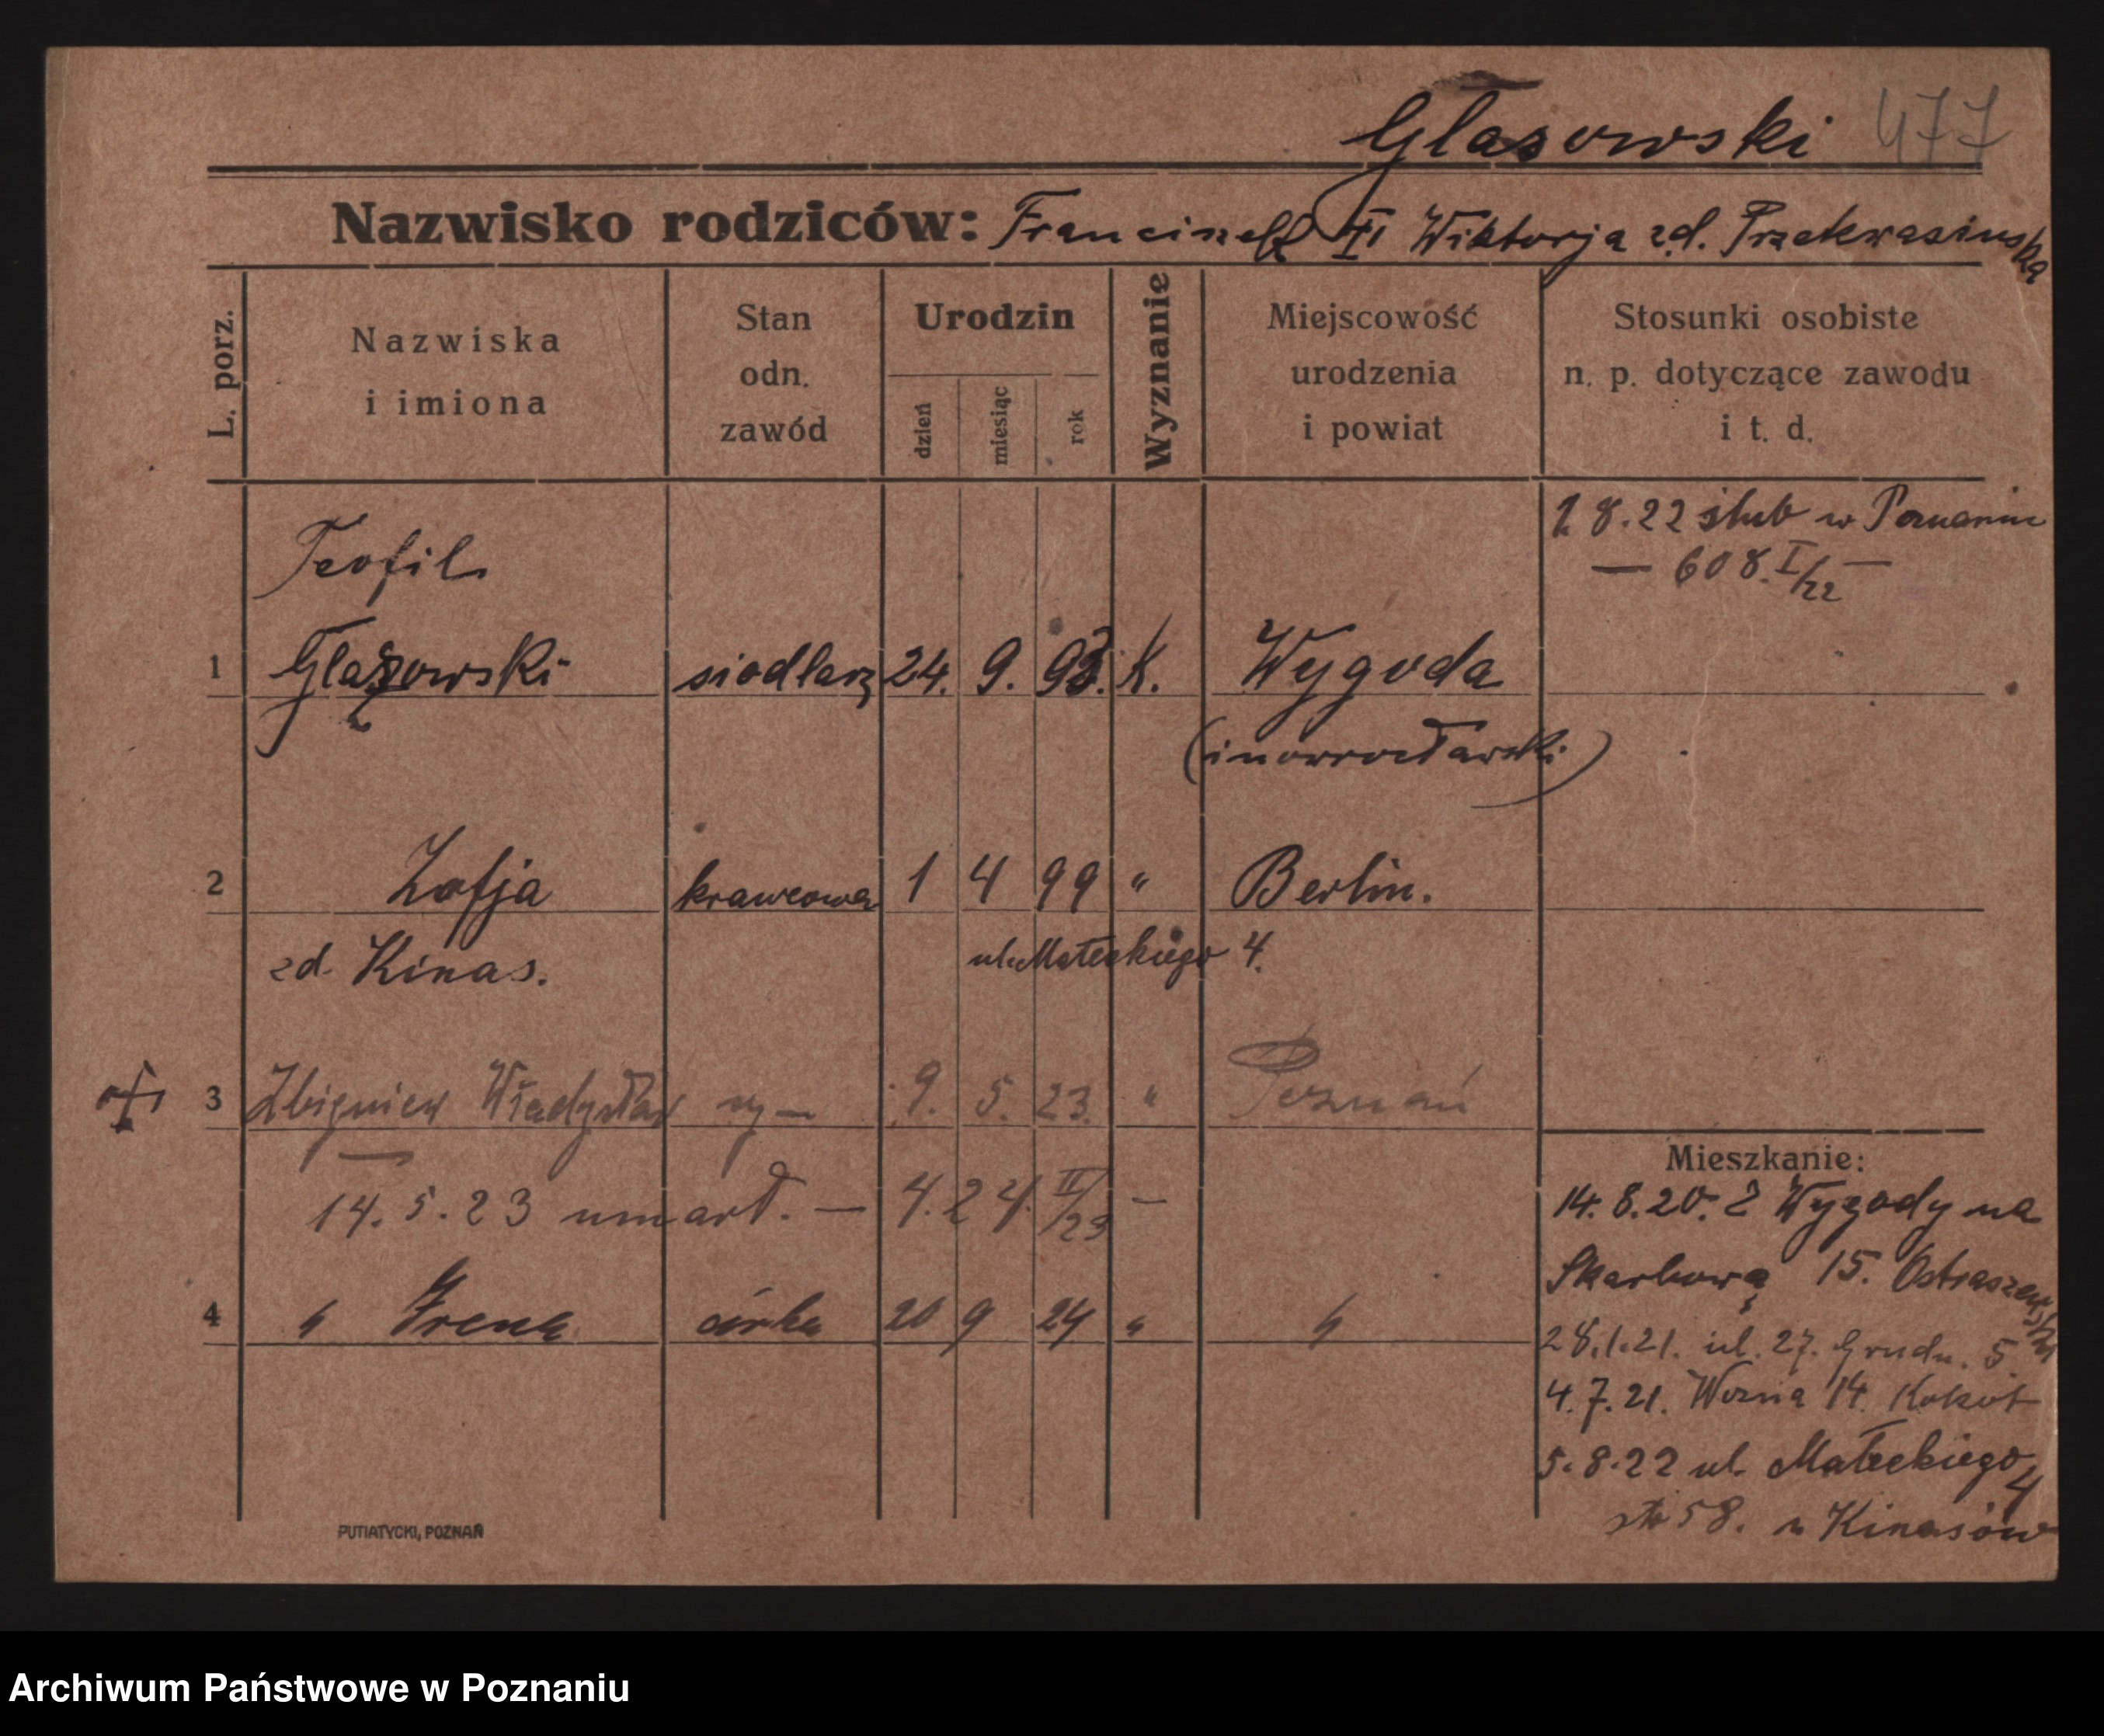 Głazowski 477
Nazwisko rodziców: Franciszek II Wiktorja zd. Przekwasińska
L. porz.
Nazwiska
i imiona
Stan
odn.
zawód
Urodzin
dzień
miesiąc
rok
Wyznanie
Miejscowość
urodzenia
i powiat
Stosunki osobiste
n. p. dotyczące zawodu
i t. d.
1. 8. 22 ślub w Poznaniu
— 608. I/22 —
Teofil
1 Głazowski siodlarz 24. 9. 93. K. Wygoda
(inowrocławski)
2 Zofja krawcowa 1 4 99 " Berlin.
zd. Kinas. ul. Małeckiego 4.
3 Zbigniew Władysław sy— 9. 5. 23. " Poznań
14. 5. 23 umarł. — 4. 24. II/23 —
4 " Irena córka 20 9 24 " "
Mieszkanie:
14. 8. 20. z Wygody na
Skarbową 15. Ostraszewski
28.1.21. ul. 27. Grudn. 5
4. 7. 21. Woźna 14. Kokot
5. 8. 22 ul. Małeckiego 4
58. u Kinasów
PUTIATYCKI, POZNAŃ
Archiwum Państwowe w Poznaniu